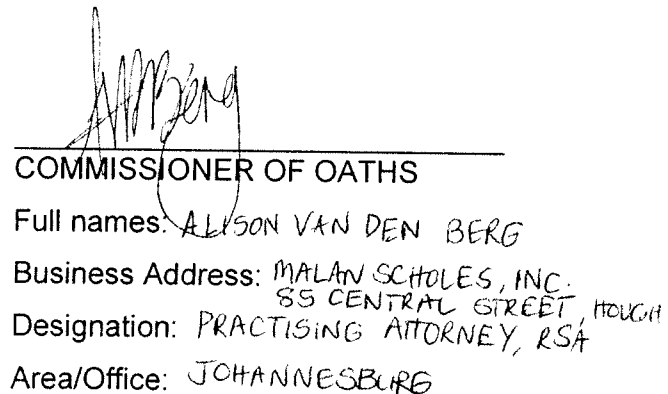 COMMISSIONER OF OATHS
Full names: ALISON VAN DEN BERG
Business Address: MALAN SCHOLES, INC.
85 CENTRAL STREET, HOUGH
Designation: PRACTISING ATTORNEY, RSA
Area/Office: JOHANNESBURG